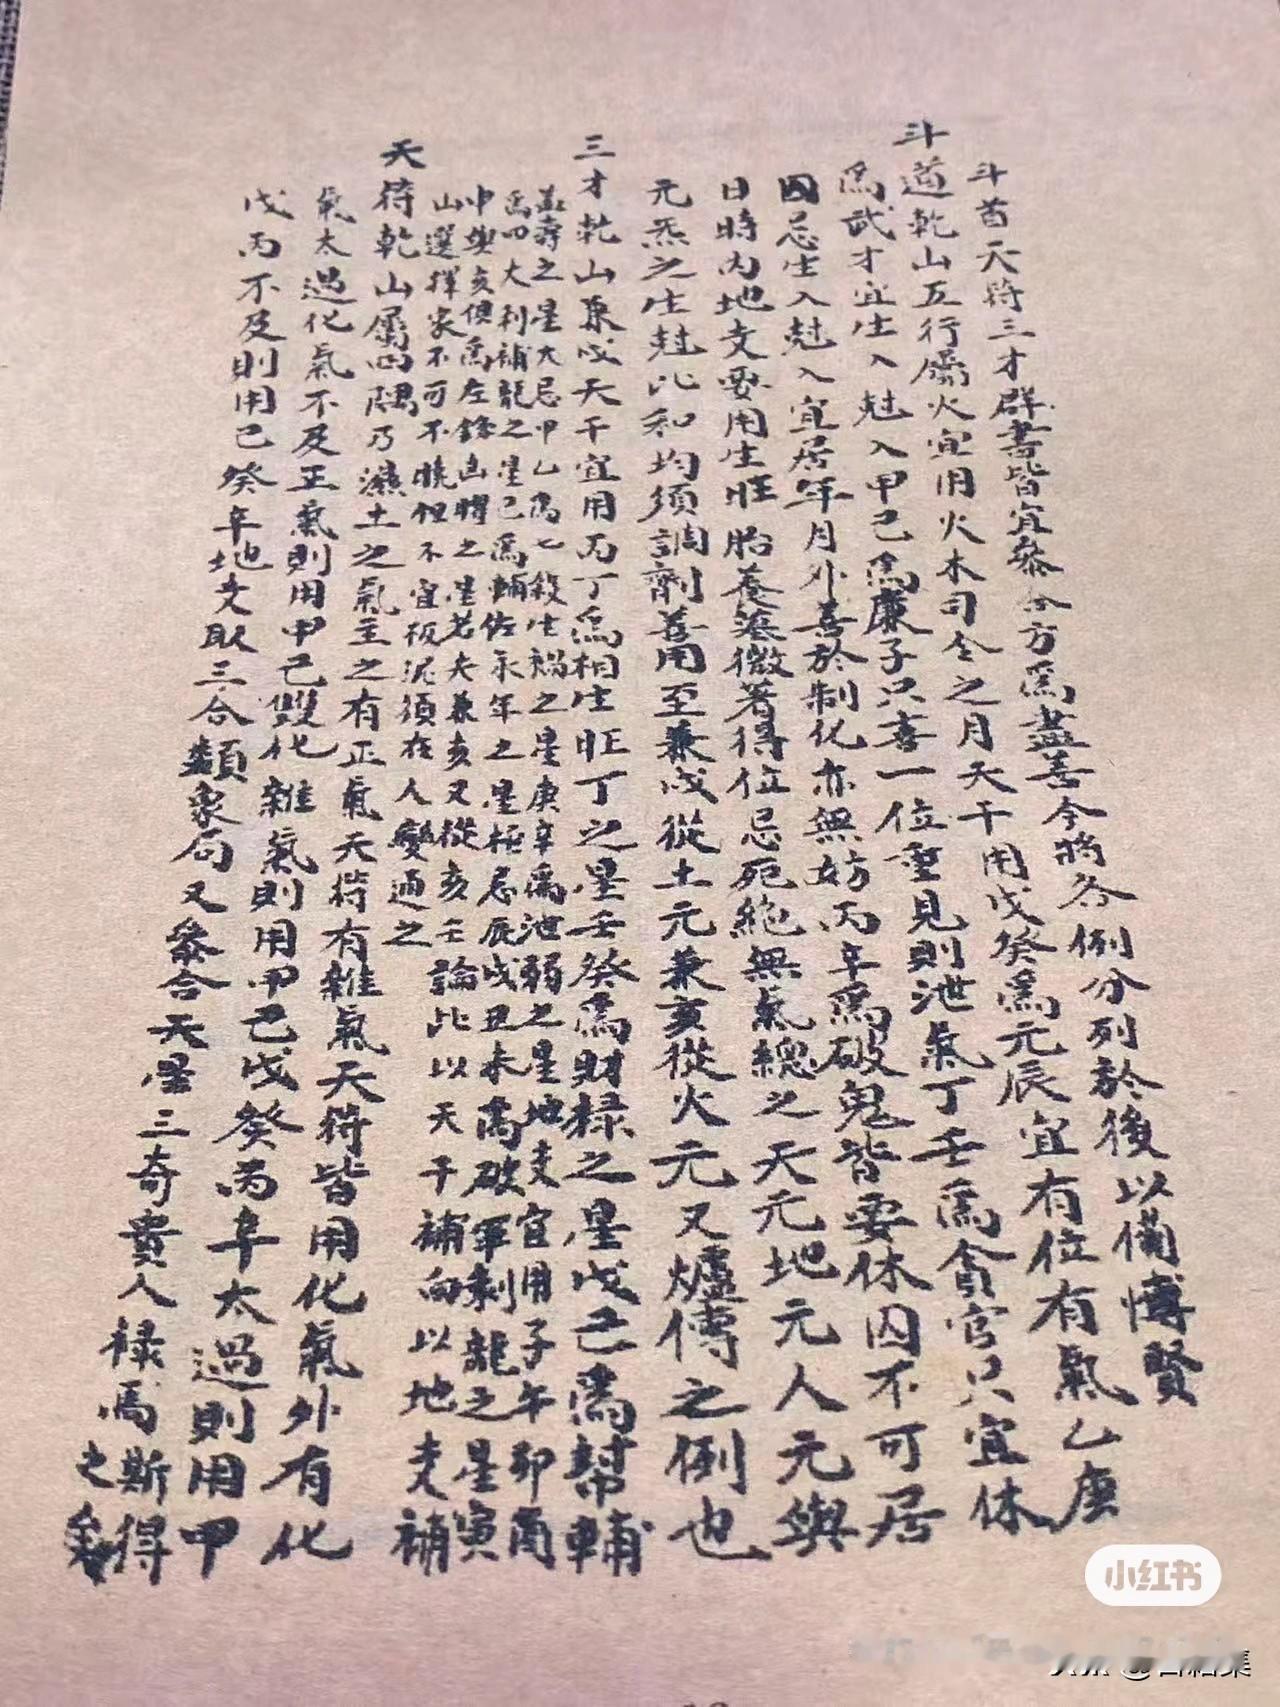 斗首天符三才群書皆宜參合方為盡善今將各例分列於後以備博賢
斗道乾山五行屬火宜用火木司令之月天干用戊癸為元辰宜有位有氣乙庚
為武才宜生入尅入甲己為廉子只喜一位重見則泄氣丁壬為貪官只宜休
囚忌生入尅入宜居年月外善於制化亦無妨丙辛為破鬼皆要休囚不可居
日時內地支要用生旺胎養葢微著得位忌死絶無氣總之天元地元人元與
元炁之生尅比和均須調劑善用至兼戌從土元兼亥從火元又爐傳之例也
三才乾山兼戌天干宜用丙丁為相生旺丁之星壬癸為財禄之星戊己為幫輔
益壽之星大忌甲乙為七殺生禍之星庚辛為泄弱之星地支宜用子午卯酉
為四大利補龍之星巳為輔佐永年之星極忌辰戌丑未為破軍剝龍之星寅
申與亥俱為左錄幽贈之星若夫兼亥又從亥壬論比以天干補向以地支補
山選擇家不可不曉但不宜板泥須在人變通之
天符乾山屬四隅乃濕土之氣主之有正氣天符有雜氣天符皆用化氣外有化
氣太過化氣不及正氣則用甲己雙化雜氣則用甲己戊癸丙辛太過則用甲
戊丙不及則用己癸辛地支取三合類象局又參合天星三奇貴人禄馬斯得
之矣
小红书